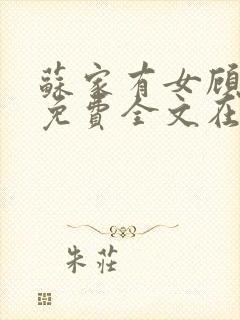 蘇家有女顾
免費全文在
朱莊